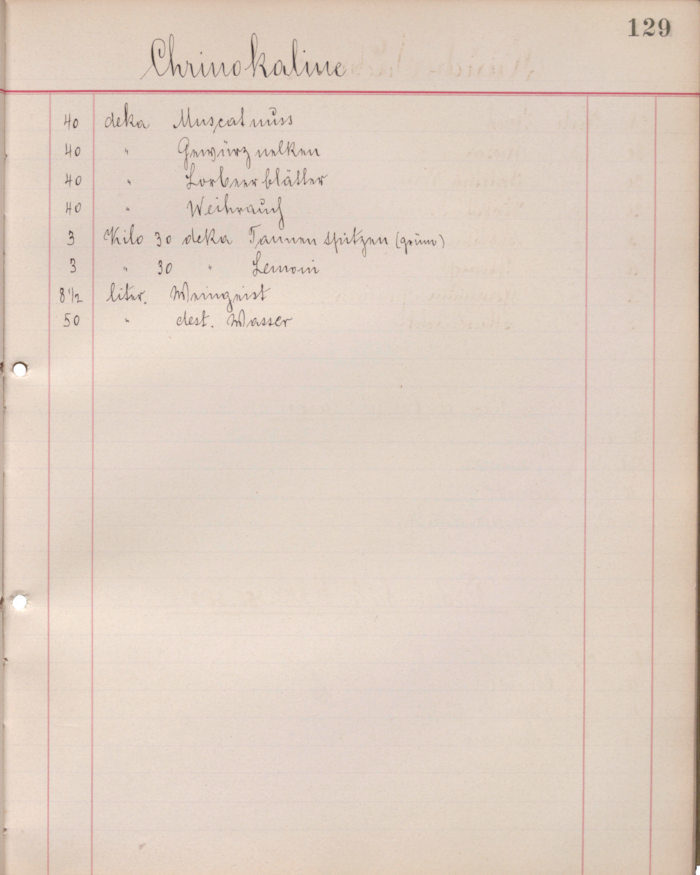 129
Chrinokaline
40 deka Muscatnuss
40 " Gewürznelken
40 " Lorbeerblätter
40 " Weihrauch
3 Kilo 30 deka Tannenspitzen (grüne)
3 " 30 " Lemoni
8 1/2 liter. Weingeist
50 " dest. Wasser